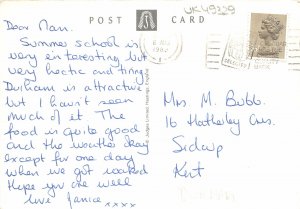 UK49229
POST CARD
Dear Mam.
Summer school is
very interesting but
very hectic and tiring
Durham is attractive
but I havn't seen
much of it. The
food is quite good
and the weather okay
except for one day
when we got soaked
Hope you are well
love Janice xxxx
Judges Limited Hastings, England
Mrs. M. Bubb.
16 Hatherley Cres.
Sidcup
Kent